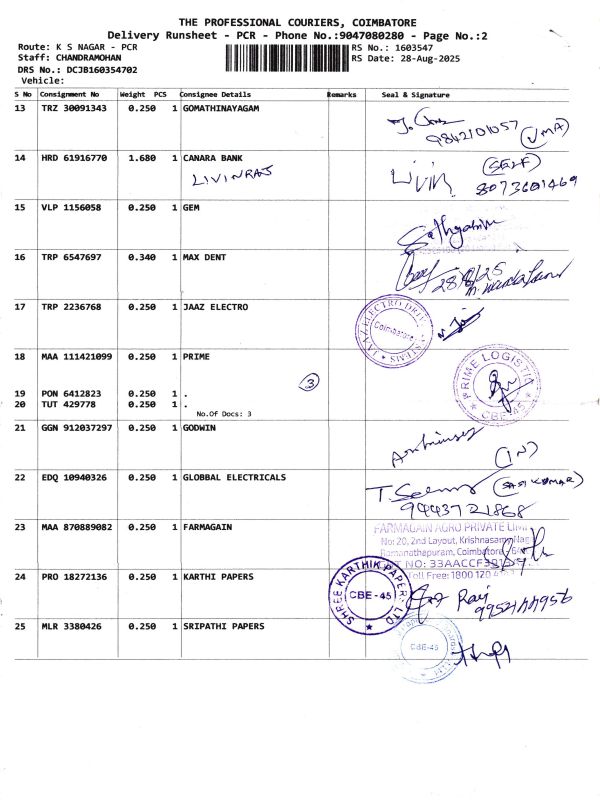 THE PROFESSIONAL COURIERS, COIMBATORE
Delivery Runsheet - PCR - Phone No.:9047080280 - Page No.:2
Route: K S NAGAR - PCR
RS No.: 1603547
Staff: CHANDRAMOHAN
RS Date: 28-Aug-2025
DRS No.: DCJB160354702
Vehicle:
S No Consignment No Weight PCS Consignee Details Remarks Seal & Signature
13 TRZ 30091343 0.250 1 GOMATHINAYAGAM
9842101057
14 HRD 61916770 1.680 1 CANARA BANK
LIVINRAJ
Livin
(SELF)
8073601469
15 VLP 1156058 0.250 1 GEM
16 TRP 6547697 0.340 1 MAX DENT
28/8/25
17 TRP 2236768 0.250 1 JAAZ ELECTRO
Coimbatore
18 MAA 111421099 0.250 1 PRIME
PRIME LOGISTI
CBE-45
3
19 PON 6412823 0.250 1 .
20 TUT 429778 0.250 1 .
No.Of Docs: 3
21 GGN 912037297 0.250 1 GODWIN
(IN)
22 EDQ 10940326 0.250 1 GLOBBAL ELECTRICALS
(SASIKUMAR)
9443721868
23 MAA 870889082 0.250 1 FARMAGAIN
FARMAGAIN AGRO PRIVATE LIMI
No: 20, 2nd Layout, Krishnasamy Nag
Ramanathapuram, Coimbatore
Toll Free: 1800 120
24 PRO 18272136 0.250 1 KARTHI PAPERS
SHREE KARTHIK PAPER LTD
CBE - 45
Raj
25 MLR 3380426 0.250 1 SRIPATHI PAPERS
CBE-45